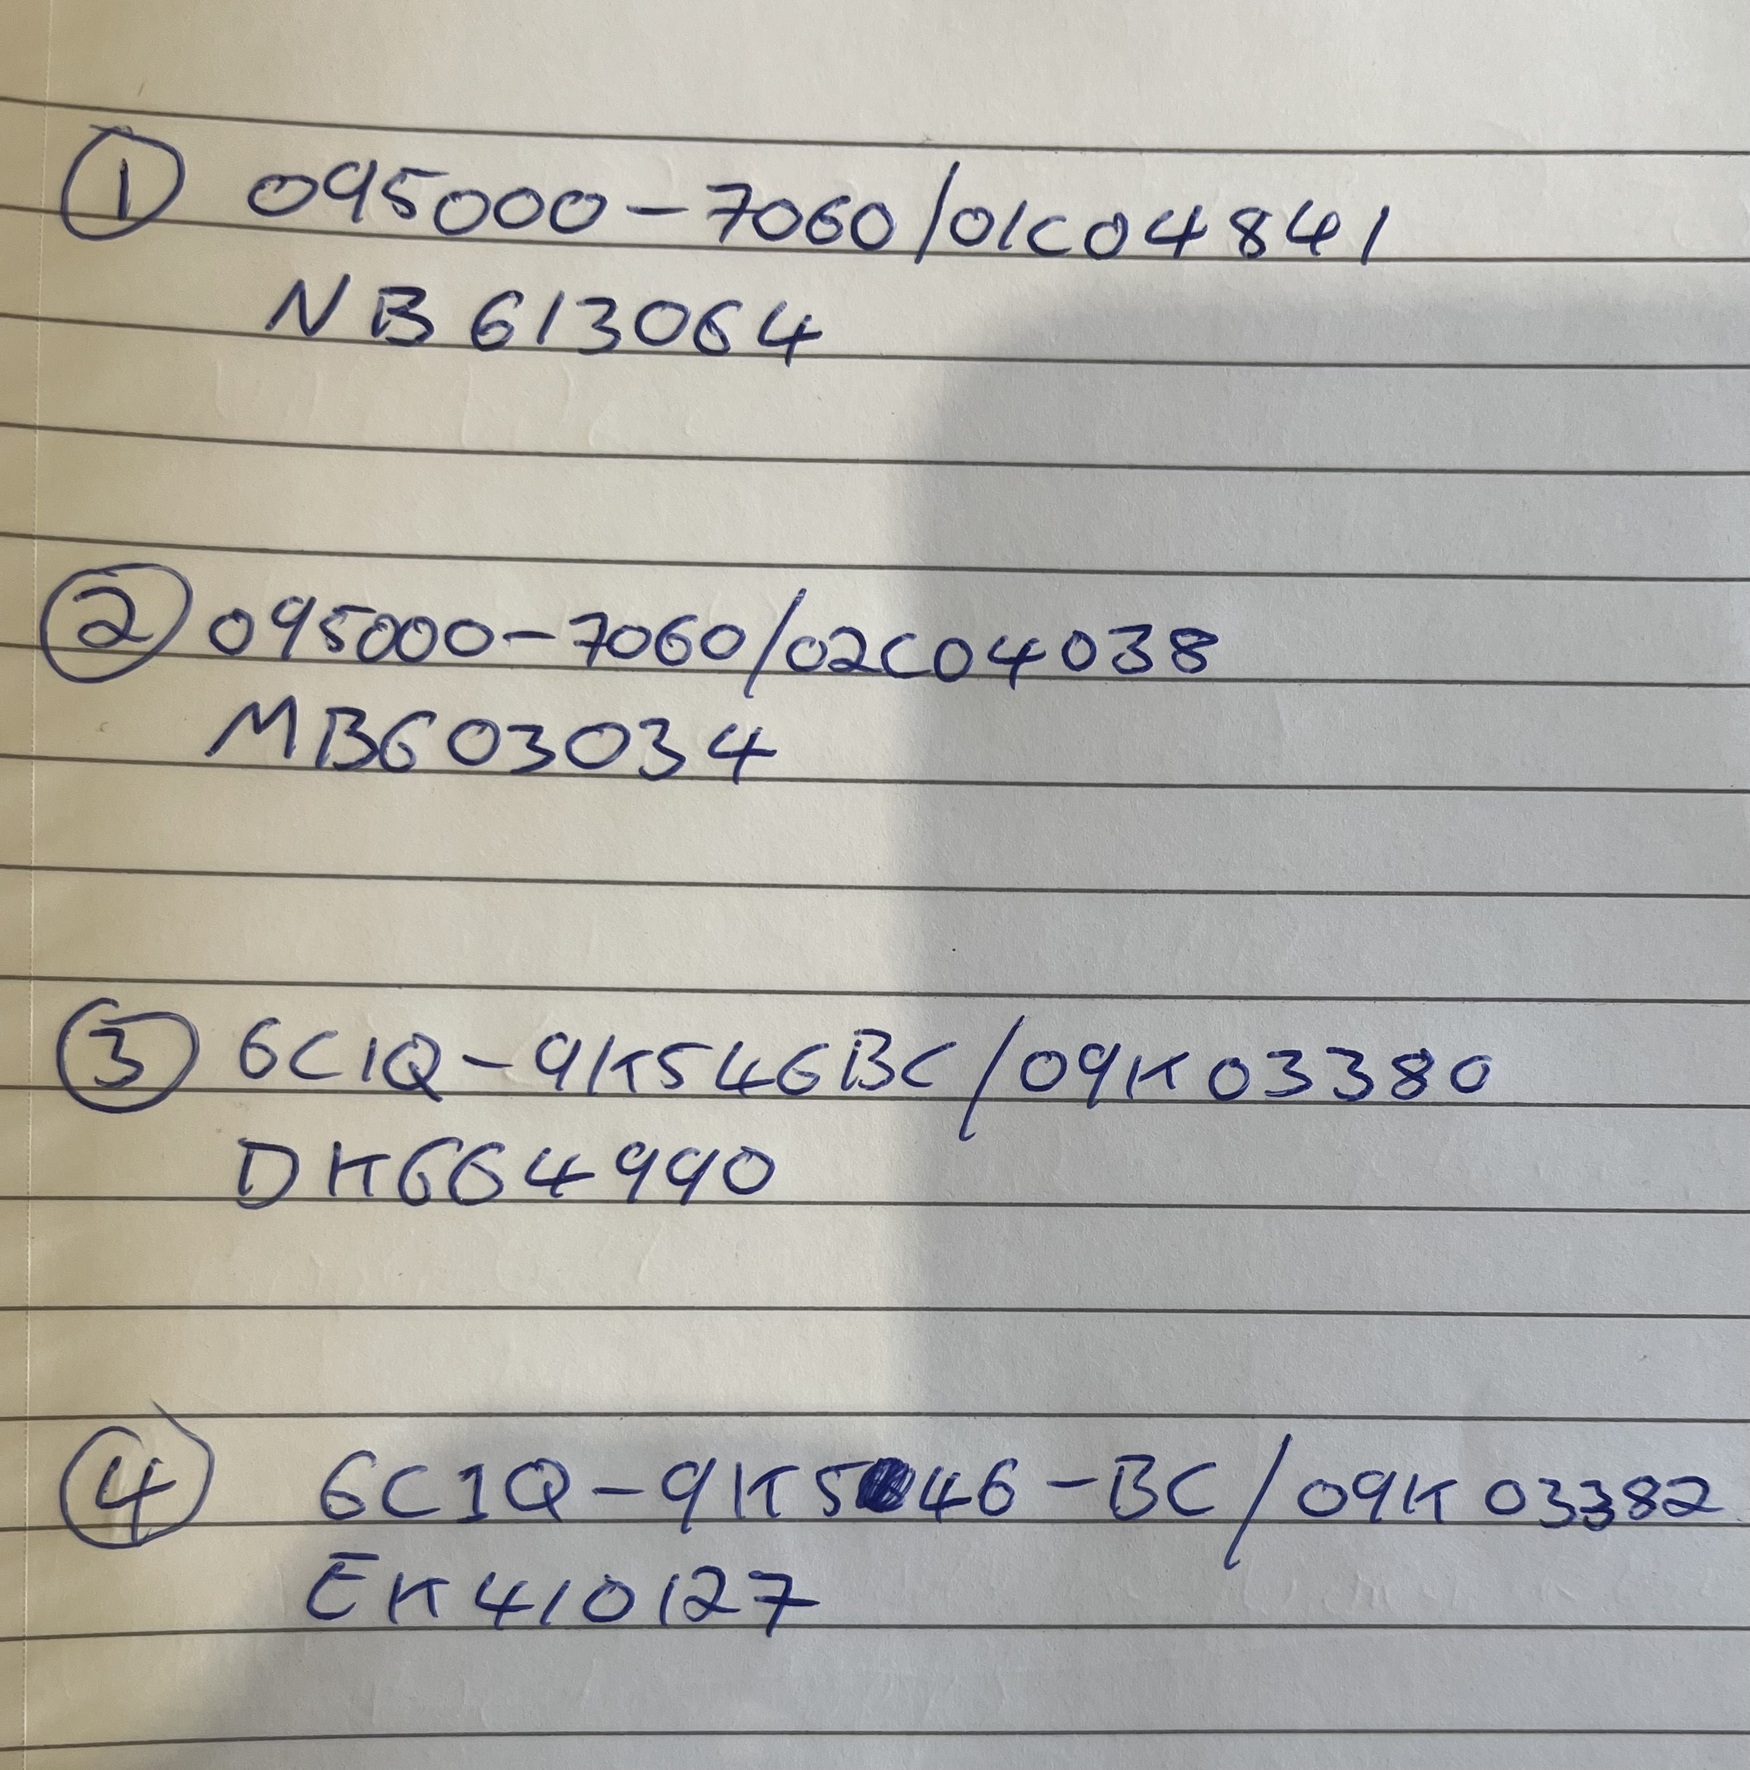 ① 095000-7060/01C04841
NB613064
② 095000-7060/02C04038
MB603034
③ 6C1Q-9K546BC/09K03380
DK664990
④ 6C1Q-9K546-BC/09K03382
EK410127